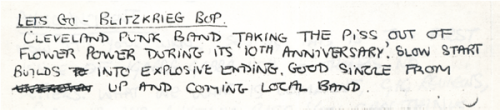 LETS GO - BLITZKRIEG BOP.
CLEVELAND PUNK BAND TAKING THE PISS OUT OF
FLOWER POWER DURING ITS '10TH ANNIVERSARY'. SLOW START
BUILDS TO INTO EXPLOSIVE ENDING. GOOD SINGLE FROM
UP AND COMING LOCAL BAND.